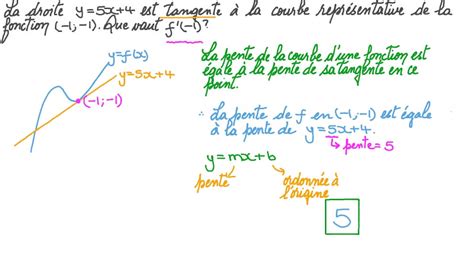 La droite y = 5x+4 est tangente à la courbe représentative de la
fonction (-1,-1). Que vaut f'(-1)?
y=f(x)
y=5x+4
(-1;-1)
La pente de la courbe d'une fonction est
égale à la pente de sa tangente en ce
point.
∴ La pente de f en (-1;-1) est égale
à la pente de y = 5x+4.
pente = 5
y = mx+b
pente
ordonnée à
l'origine
5